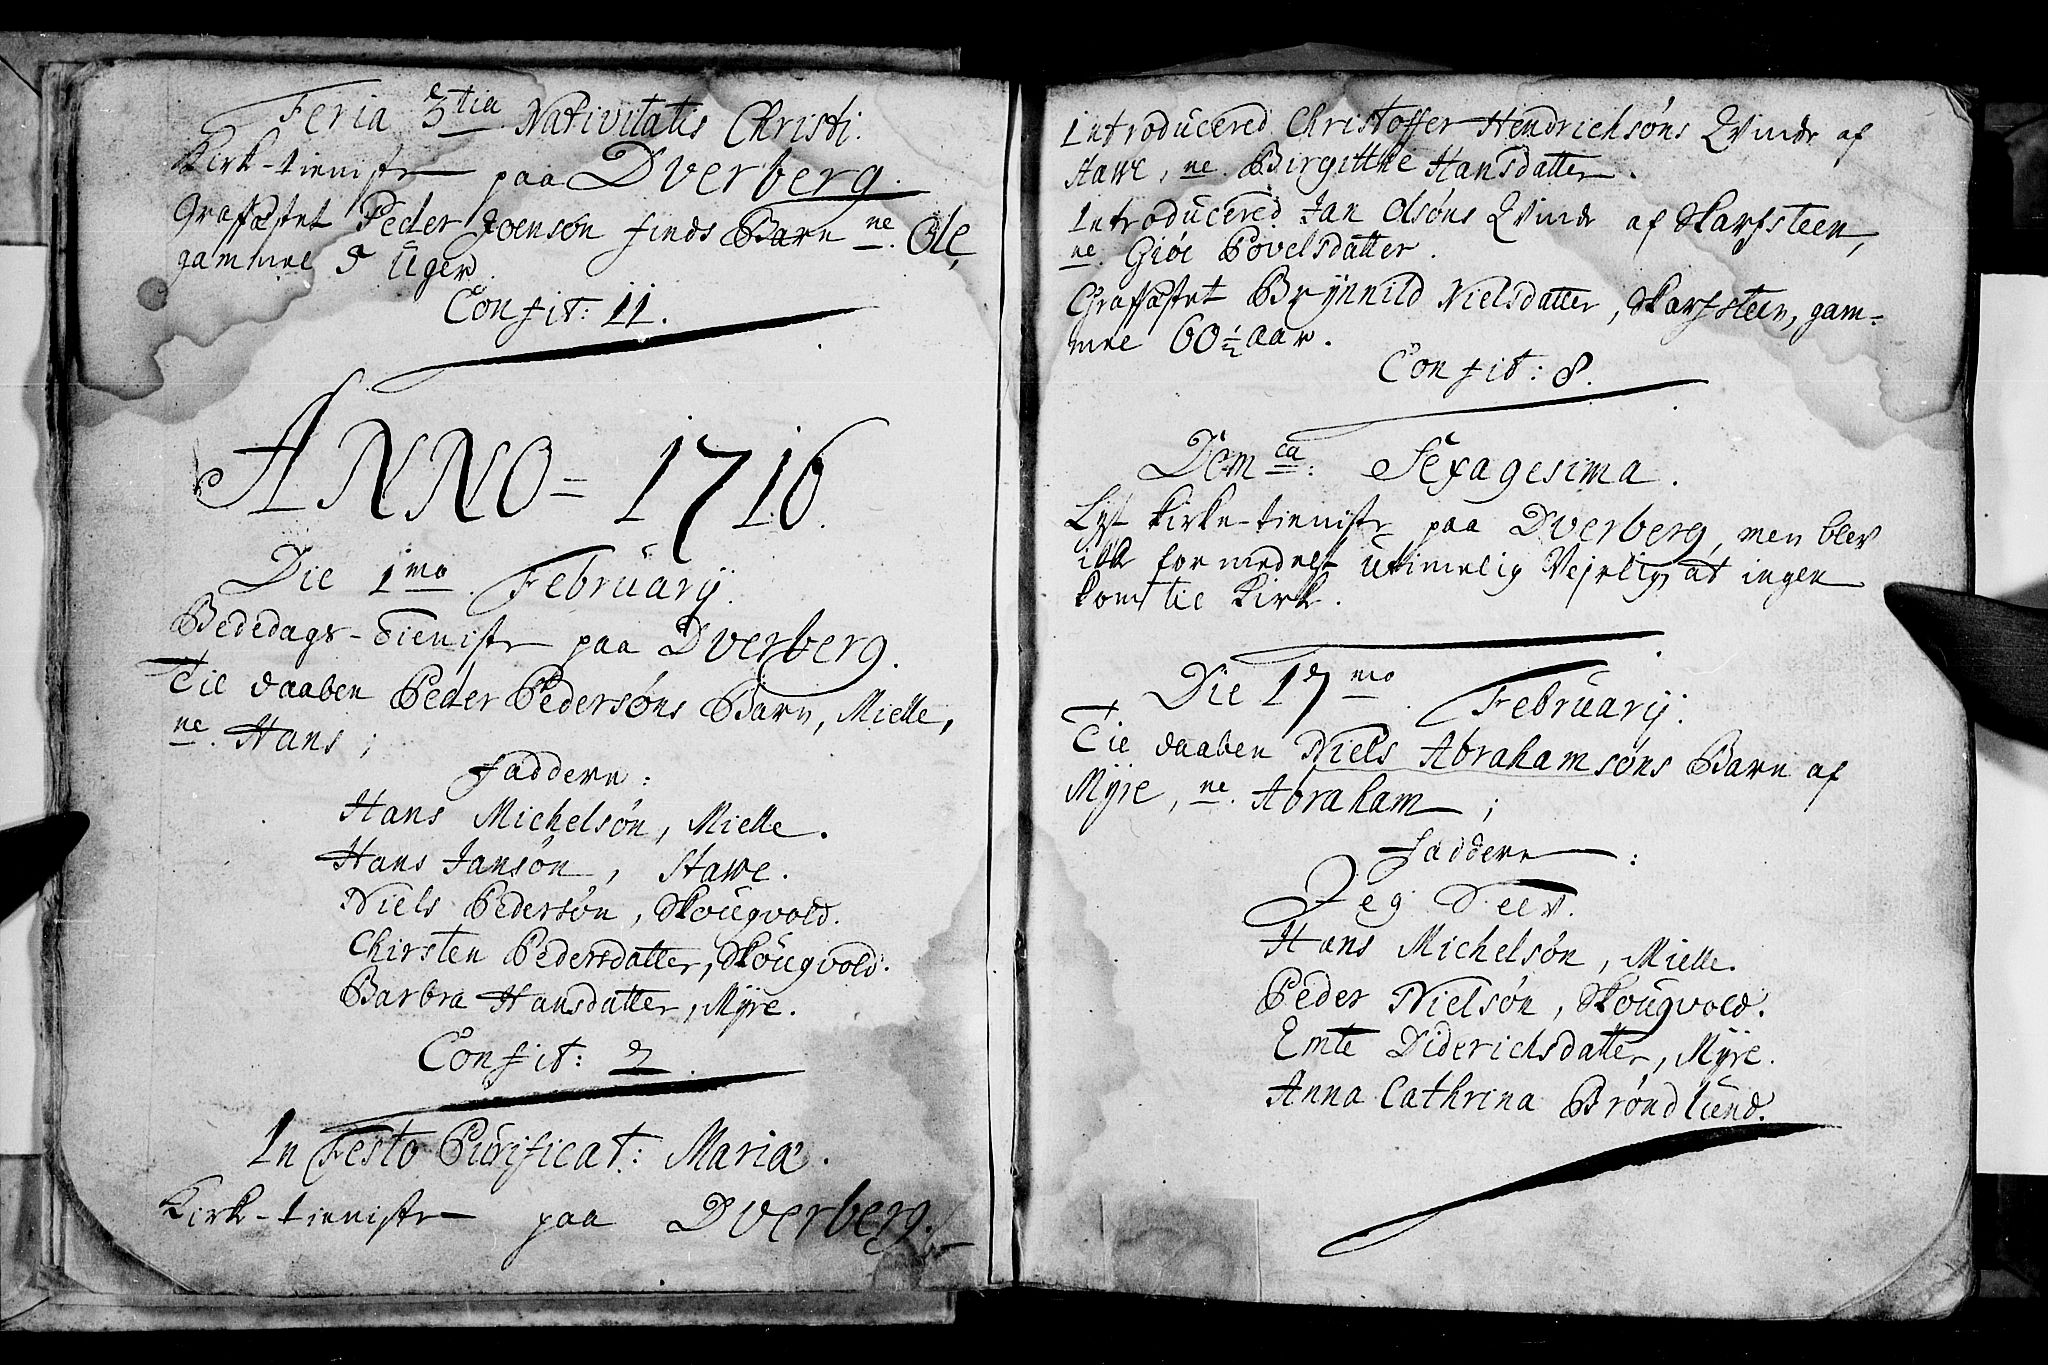 Feria 3tia Nativitatis Christi.
Kirk-tieniste paa Dverberg.
Graffæstet Peder Joensøn finds Barn ne. Ole
gammel 5 Uger.
Confit: 11.
ANNO = 1716.
Die 1mo Februarij.
Bededags-Tieniste paa Dverberg.
Til daaben Peder Pedersøns Barn, Mielle,
ne. Hans;
Faddere:
Hans Michelsøn, Mielle.
Hans Jansøn, Stawe.
Niels Pedersøn, Skougvold.
Chirsten Pedersdatter, Skougvold.
Barbra Hansdatter, Myre.
Confit: 2.
In Festo Purificat: Mariæ.
Kirk-tieniste paa Dverberg.
Introducered Christoffer Hendrichsøns Qvinde af
Stawe, ne. Birgitthe Hansdatter.
Introducered Jan Olsøns Qvinde af Skarfsteen,
ne. Giøe Povelsdatter.
Graffæstet Brynnild Nielsdatter, Skarfsteen, gam-
mel 60½ aar.
Confit: 8.
Domca: Sexagesima.
Lyst Kirke-tieniste paa Dverberg, men blev
ikke formedelst utimelig Vejrlig, at ingen
kom til Kirke.
Die 17mo Februarij.
Til daaben Niels Abrahamsøns Barn af
Myre, ne. Abraham;
Faddere:
Jeg Selv.
Hans Michelsøn, Mielle.
Peder Nielsøn, Skougvold.
Emte Diderichsdatter, Myre.
Anna Cathrina Brøndlund.